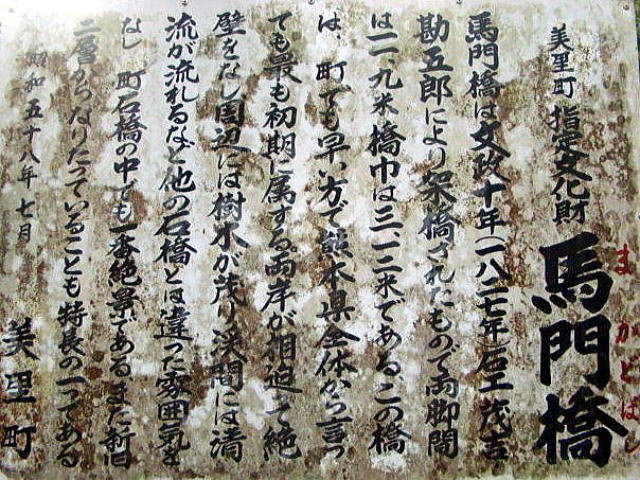 美里町 指定文化財 馬門橋
まかどばし
馬門橋は文政十年(一八二七年)石工茂吉、
勘五郎により架橋されたもので両脚間
は二八、九米橋巾は三、一二米である、この橋
は、町でも早い方で熊本県全体から言っ
ても最も初期に属する両岸が相迫って絶
壁をなし周辺には樹木が茂り渓間には清
流が流れるなど他の石橋とは違った雰囲気を
なし町石橋の中でも一番絶景であるまた新旧
二層からなりたっていることも特長の一つである
昭和五十八年七月
美里町